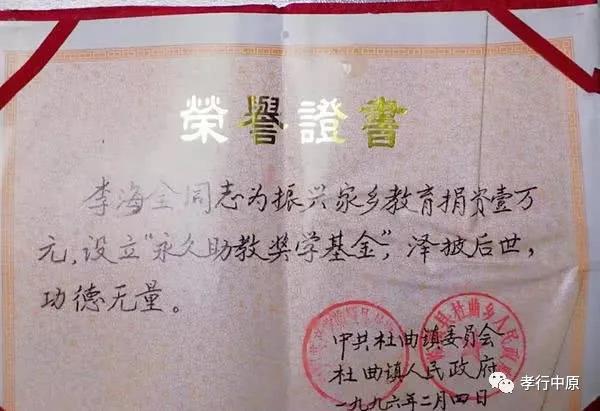 榮譽證書
李海全同志为振兴家乡教育捐资壹万
元,设立“永久助教奖学基金”,泽披后世,
功德无量。
中共杜曲镇委员会
杜曲镇人民政府
一九九六年二月四日
县杜曲乡人民政府
孝行中原